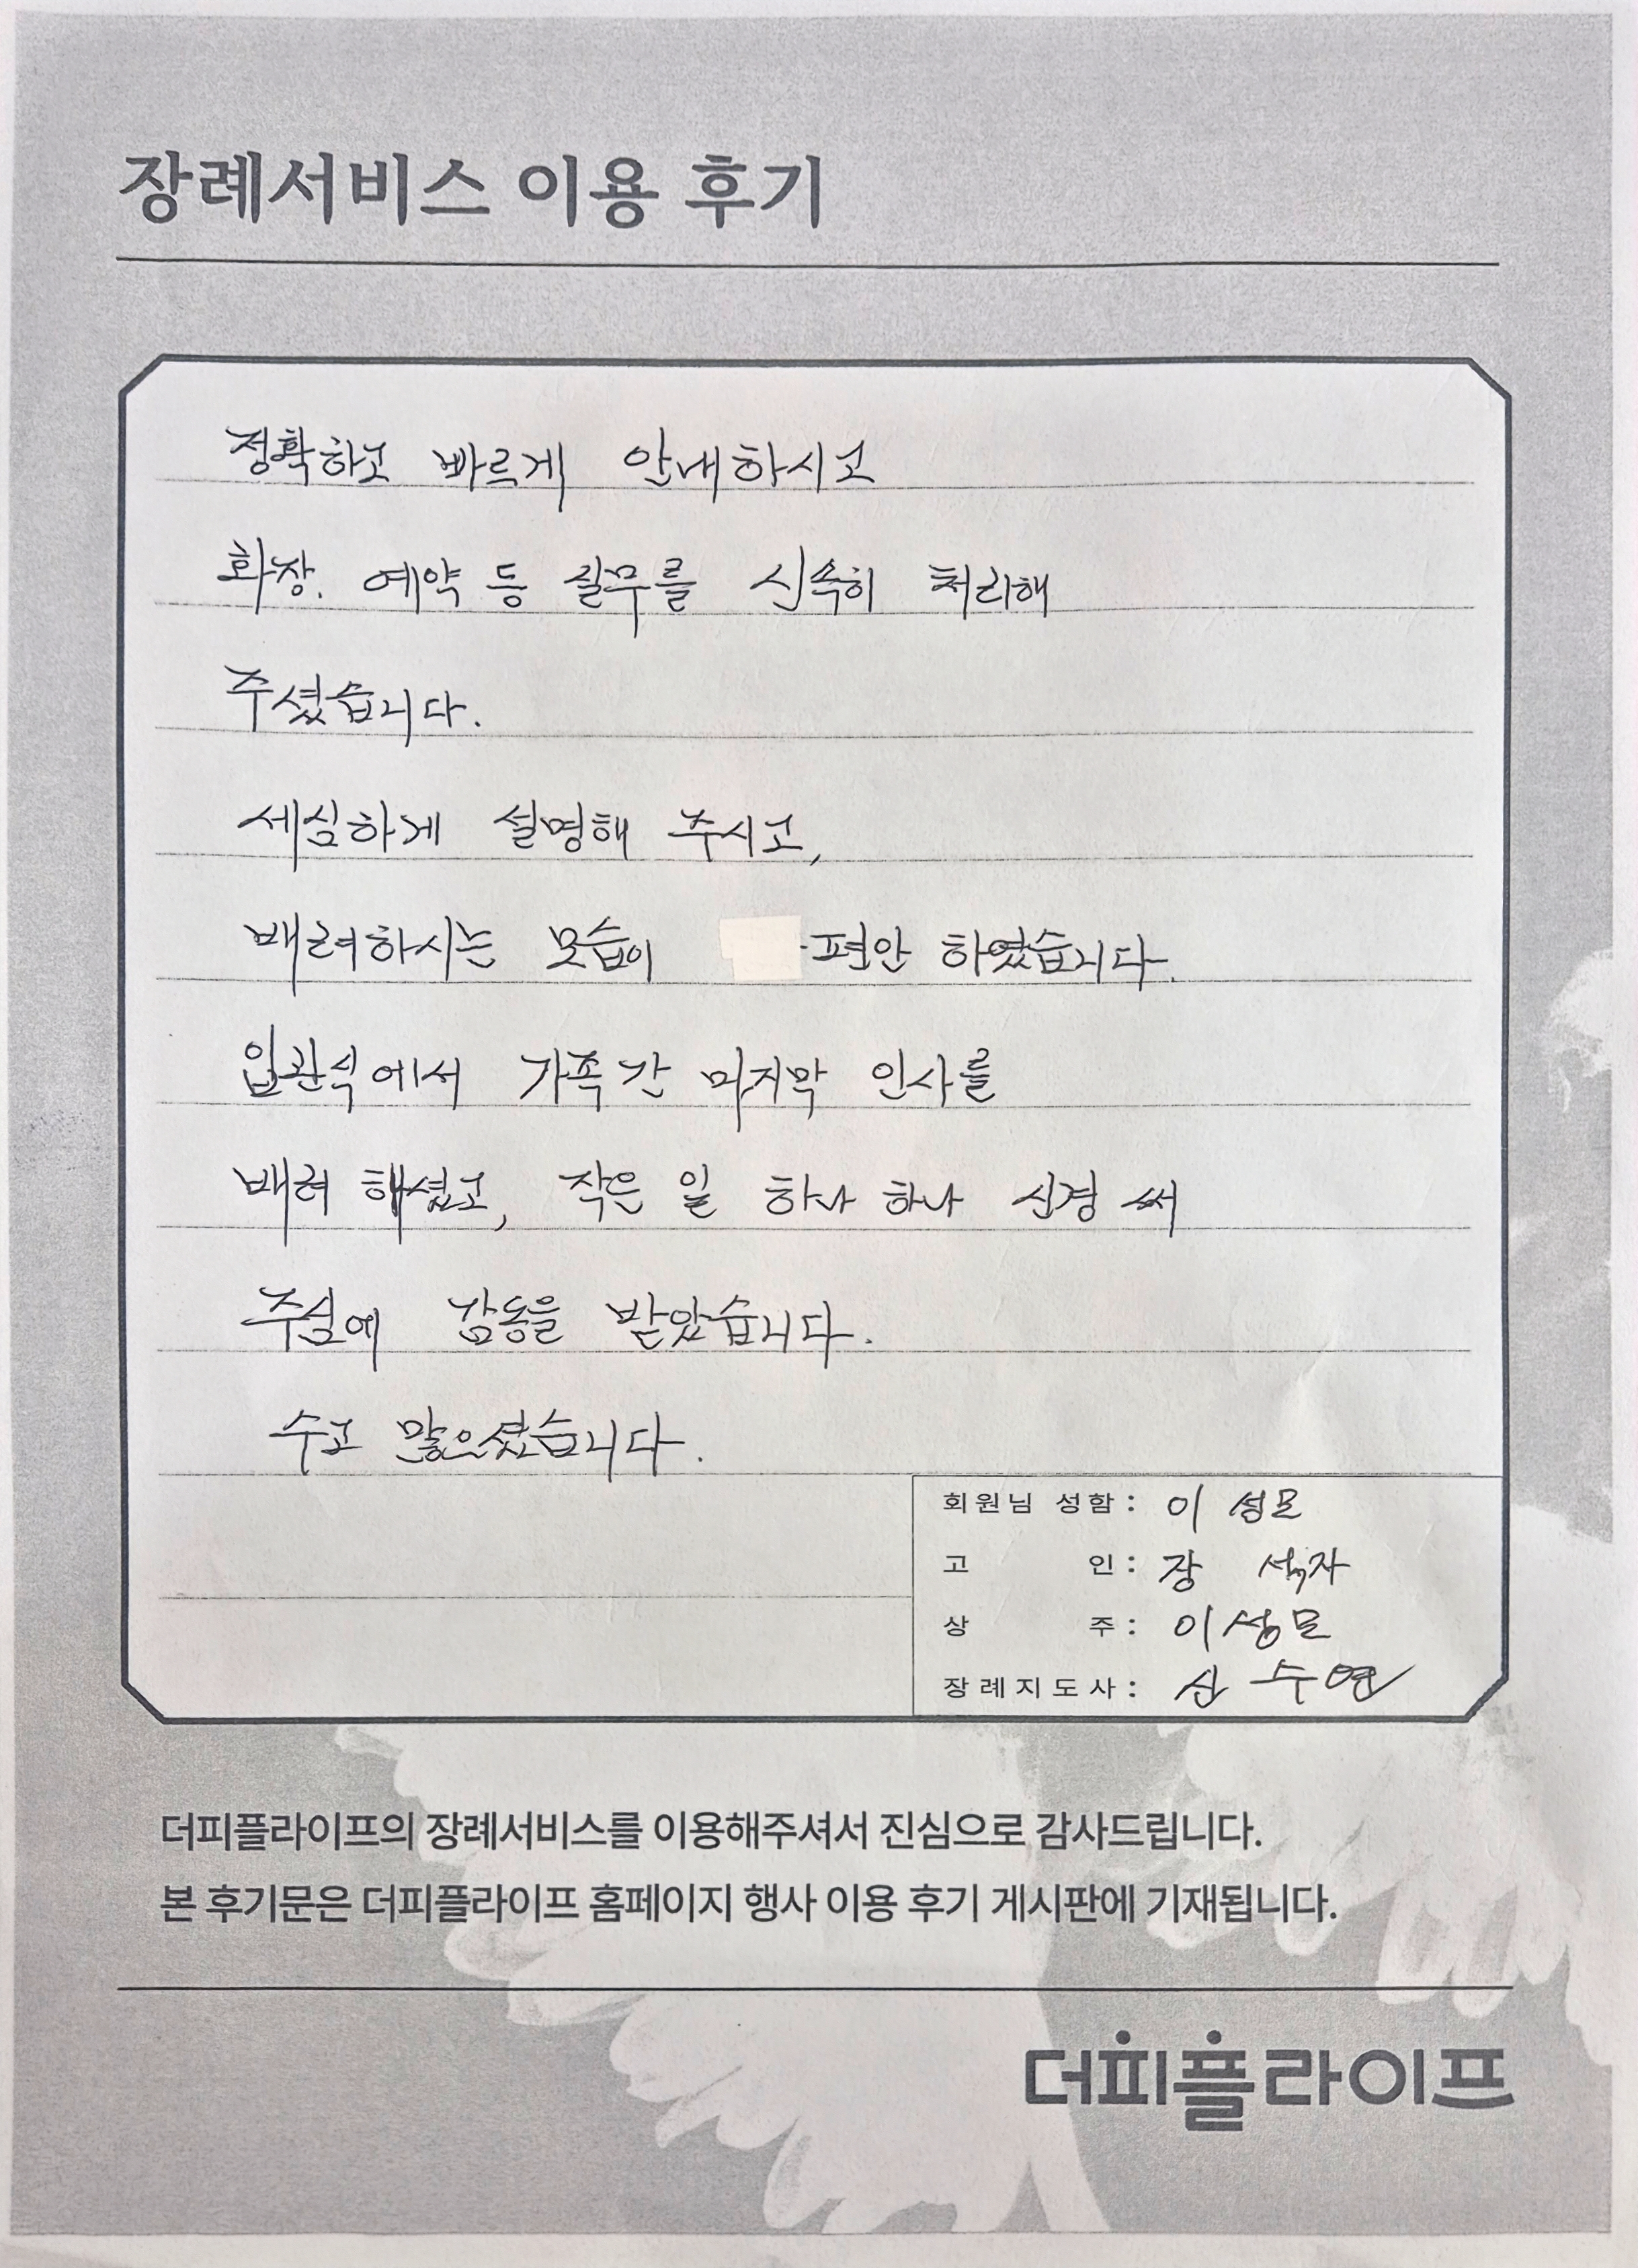 장례서비스 이용 후기
정확하고 빠르게 안내하시고
화장. 예약 등 실무를 신속히 처리해
주셨습니다.
세심하게 설명해 주시고,
배려하시는 모습이 편안 하였습니다.
입관식에서 가족간 마지막 인사를
배려 해셨고, 작은 일 하나 하나 신경 써
주심에 감동을 받았습니다.
수고 많으셨습니다.
회원님 성함 : 이 성모
고 인 : 장
상 주 : 이성모
장례지도사 : 신수연
더피플라이프의 장례서비스를 이용해주셔서 진심으로 감사드립니다.
본 후기문은 더피플라이프 홈페이지 행사 이용 후기 게시판에 기재됩니다.
더피플라이프